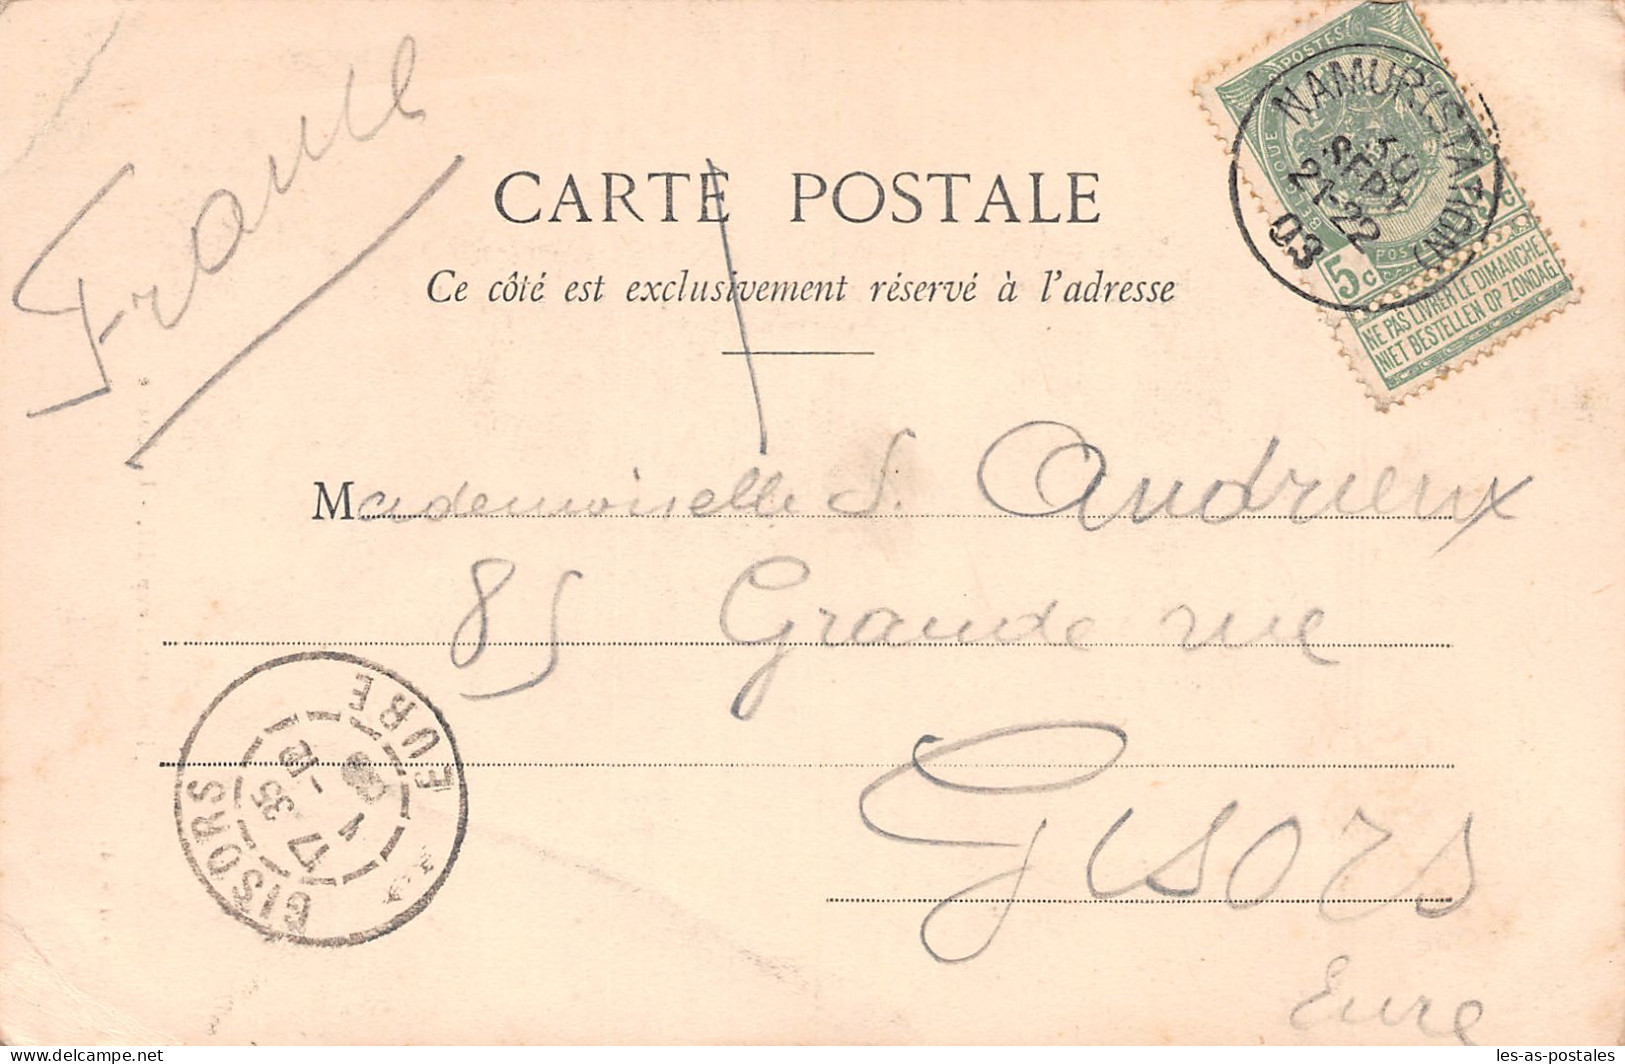 France
CARTE POSTALE
Ce côté est exclusivement réservé à l'adresse
POSTES
BELGIQUE
5c
5c
NE PAS LIVRER LE DIMANCHE
NIET BESTELLEN OP ZONDAG.
NAMUR (STATION)
30
SEPT
21-22
03
Mademoiselle S. Andrieux
85 Grande rue
Gisors
Eure
GISORS
EURE
17 35
les-as-postales